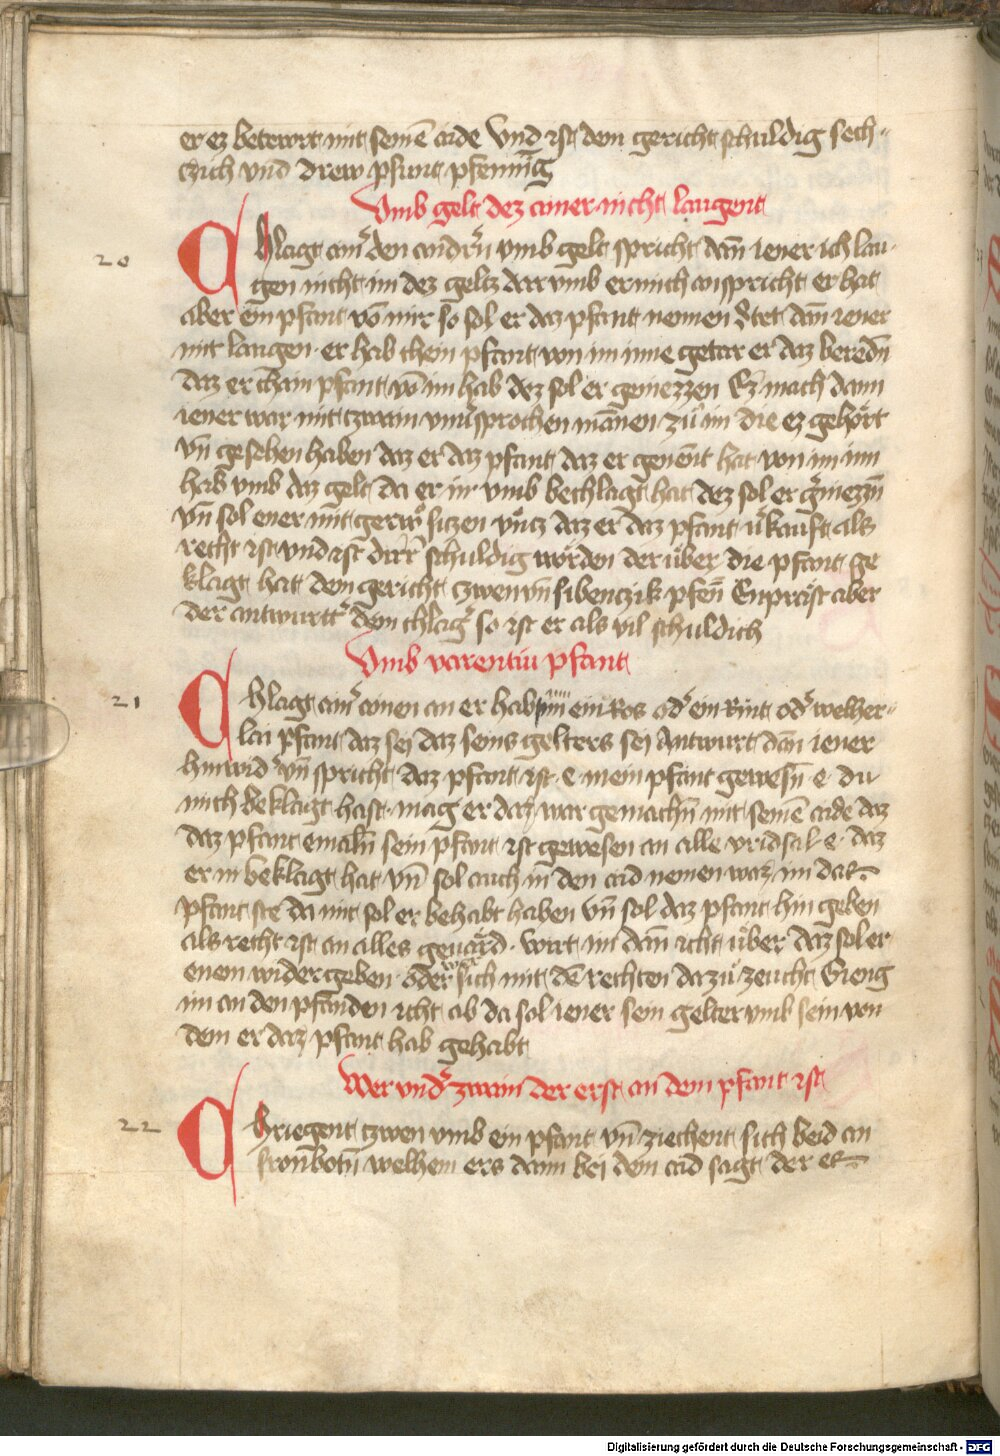 er ez betewrt mit seinē aide Vnd ist dem gericht schuldig sech-
tzich vnd drew pfunt pfennig
Vmb gelt dez ainer nicht laugent
20
Chlagt ainˀ den andˀn vmb gelt spricht dañ iener ich lau-
gen nicht im dez geltz dar vmb er mich anspricht er hat
aber ein pfant võ mir so sol er daz pfant nennen Stet dañ iener
mit laugen er hab chein pfant von im inne getar er daz beredñ
daz er chain pfant võ im hab dez sol er geniezzen Ez mach dann
iener war mit tzwain vnuˀsprochen mãnen zů im die ez gehört
vñ gesehen haben daz er daz pfant daz er genēnt hat von im inn
hab vmb daz gelt da er in vmb bechlagt hat dez sol er gˀniezzñ
vñ sol ener mit gerwͦ sitzen vntz daz er daz pfant uˀkauft als
recht ist vnd ist dirr schuldig worden der über die pfant ge
klagt hat dem gericht zwen vñ sibenczik pfeñ Enprist aber
der antwurttˀ dem chlagˀ so ist er als vil schuldich
Vmb varentiu pfant
21
Chlagt ainˀ ainen an er hab im ein Ros odˀ ein Rint odˀ welher-
lai pfant daz sei daz seins gelters sei Antwurt dañ iener
hinwidˀ vñ spricht daz pfant ist e mein pfant gewesñ e du
mich beklagt hast mag er daz war gemachñ mit seinē aide daz
daz pfant emaln sein pfant ist gewesen an alle vridsal e daz
er in beklagt hat vñ sol auch in den aid nemen waz im daz
pfant ste da mit sol er behabt haben vñ sol daz pfant hin geben
als recht ist an alles geuärd. Wirt im dañ icht über daz sol er
enem wider geben oder wer sich mit dē rechten dazů zeucht Gieng
im an den pfanden icht ab da sol iener sein gelter vmb sein von
dem er daz pfant hab gehabt
Wer vndˀ zwain der erst an dem pfant ist
22
Chriegent tzwen vmb ein pfant vñ ziechent sich beid an
fronbotñ welhem ers dann bei dem aid sagt der er
Digitalisierung gefördert durch die Deutsche Forschungsgemeinschaft - DFG